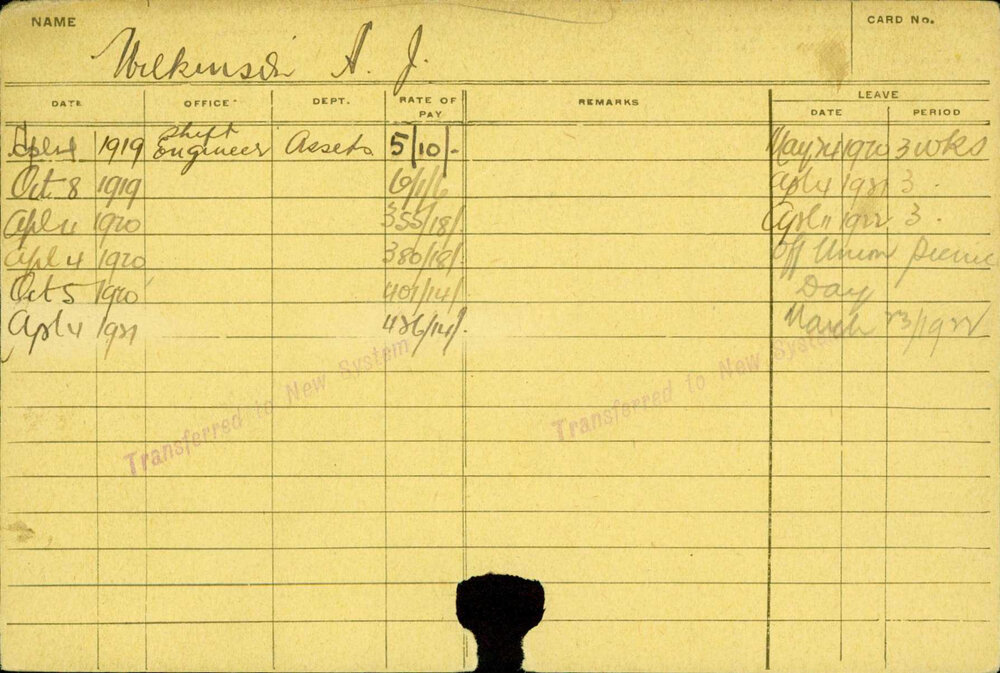 NAME
CARD No.
Wilkinson A. J.
DATE OFFICE DEPT. RATE OF PAY REMARKS LEAVE
DATE PERIOD
Shift
1919 Engineer Assets 5/10/- May 1920 3 wks
Oct 8 1919 6/1/6 Apl 4 1921 3.
Apl 1920 355/18/- Apl 11 1922 3.
Apl 4 1920 380/18/- Off Union Picnic
Oct 5 1920 401/14/- Day
Apl 4 1921 426/14/- March 23/1922
Transferred to New System
Transferred to New System